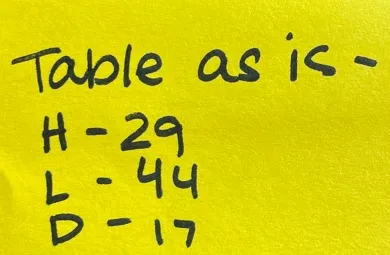 Table as is -
H - 29
L - 44
D - 17